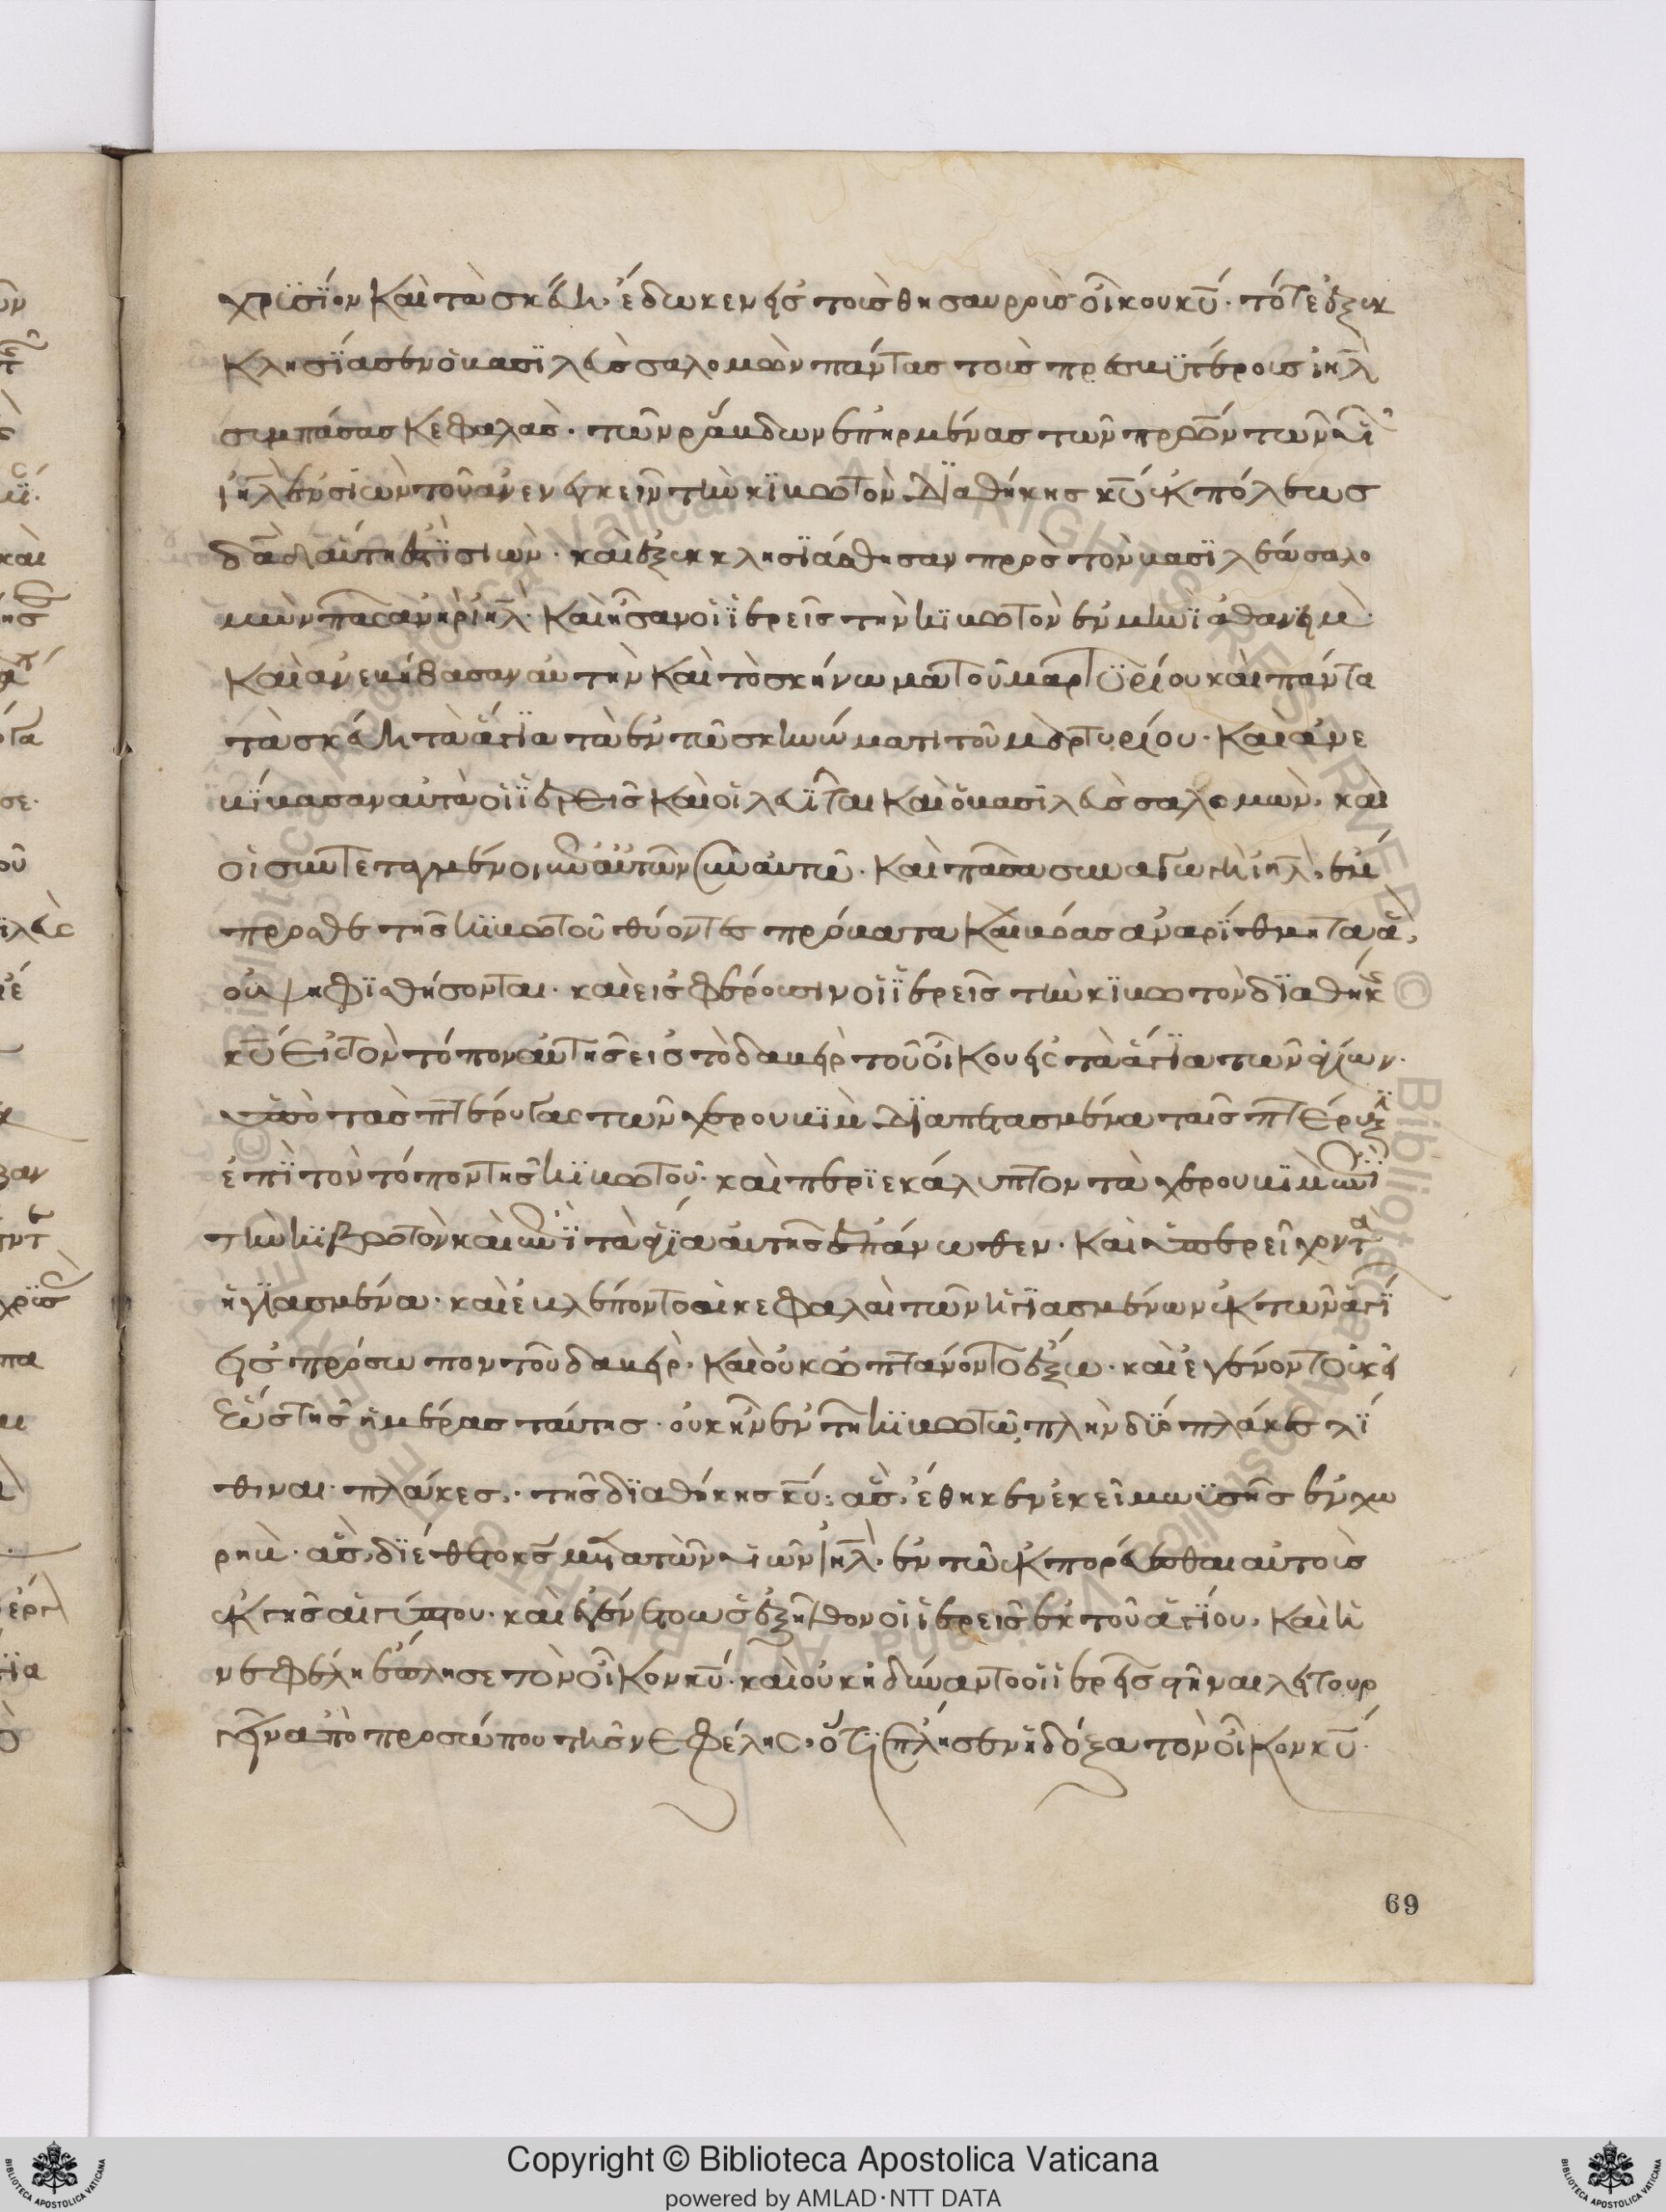 χρϋσίον καὶ τὰ σκεύη, ἔδωκεν εἰς τοὺς θησαυροὺς οἴκου κῡ· τότε ἐξεκ
κλησίασεν ὁ βασιλεὺς σαλομὼν πάντας τοὺς πρεσβϋτέρους ἰηλ
συμπάσας κεφαλὰς· τῶν ράβδων ἐπηρμένας τῶν πρων τῶν υἱ
ἰηλ ἐν σιὼν τοῦ ἀνενεγκεῖν τὴν κϊβωτὸν διαθήκης κῡ ἐκ πόλεως
δᾱδ αὐτη ἐστὶ σιὼν· καὶ ἐξεκκλησϊάσθησαν πρὸς τὸν βασϊλέα σαλο
μὼν πᾶς ἀνὴρ ἰηλ· καὶ ἦραν οἱ ἱερεῖς τὴν κϊβωτὸν ἐν μηνὶ ἀθανεὶμ·
καὶ ἀνεβήβασαν αὐτὴν καὶ τὸ σκήνωμα τοῦ μαρτϋρίου καὶ πάντα
τὰ σκεύη τὰ ἅγϊα τὰ ἐν τῶ σκηνώματι τοῦ μαρτυρίου· καὶ ἀνε
βίβασαν αὐτὰ οἱ ἱερεῖς καὶ οἱ λευῖται καὶ ὁ βασιλεὺς σαλομὼν, καὶ
οἱ συντεταγμένοι ἐπ αὐτῶν σὺν αὐτῶ· καὶ πᾶσα συναγωγὴ ἰηλ, ἐμ
προσθε τῆς κϊβωτοῦ θύοντες πρόβατα καὶ βόας ἀναρίθμητα ἃ,
οὐ ψηφϊσθήσονται· καὶ εἰσφέρουσιν οἱ ἱερεῖς τὴν κϊβωτὸν δϊαθήκ
κῡ εἰς τὸν τόπον αὐτῆς εἰς τὸ δαβεὶρ τοῦ οἴκου εἰς τὰ ἅγϊα τῶν ἁγίων·
ὑπὸ τὰς πτέρυγας τῶν χερουβὶμ διαπετασμένα ταῖς πτέρυξϊ
ἐπὶ τὸν τόπον τῆς κϊβωτοῦ· καὶ περϊεκάλυπτον τὰ χερουβὶμ ἐπὶ
τὴν κϊβωτὸν καὶ ἐπὶ τὰ ἅγια αὐτῆς ἐπάνωθεν· καὶ ὑπερεῖχον τα
ἡγϊασμένα· καὶ ἐβλέποντο αἱ κεφαλαὶ τῶν ἡγϊασμένων ἐκ τῶν ἁγί
εἰς πρόσωπον τοῦ δαβεὶρ· καὶ οὐκ ὠπτάνοντο ἔξω· καὶ ἐγένοντο ἐκεῖ
ἕως τῆς ἡμέρας ταύτης· οὐκ ἦν ἐν τῆ κϊβωτῶ πλὴν δύο πλάκες λί
θιναι· πλάκες, τῆς δϊαθήκης κῡ· ἃς, ἔθηκεν ἐκεῖ μωϋσῆς ἐν χω
ρὴβ· ἃς, δϊέθετο κς μετὰ τῶν υἱῶν ἰηλ, ἐν τῶ ἐκπορεύεσθαι αὐτοὺς
ἐκ γῆς αἰγύπτου· καὶ ἐγένετο ὡς ἐξῆλθον οἱ ἱερεῖς ἐκ τοῦ ἁγίου, καὶ ἡ
νεφέλη ἔπλησε τὸν οἶκον κῡ· καὶ οὐκ ἠδύναντο οἱ ἱερεῖς στῆναι λειτουρ
γεῖν ἀπὸ προσώπου τῆς νεφέλης, ὅτι ἔπλησεν ἡ δόξα τὸν οἶκον κῡ·
69
Copyright © Biblioteca Apostolica Vaticana
powered by AMLAD·NTT DATA